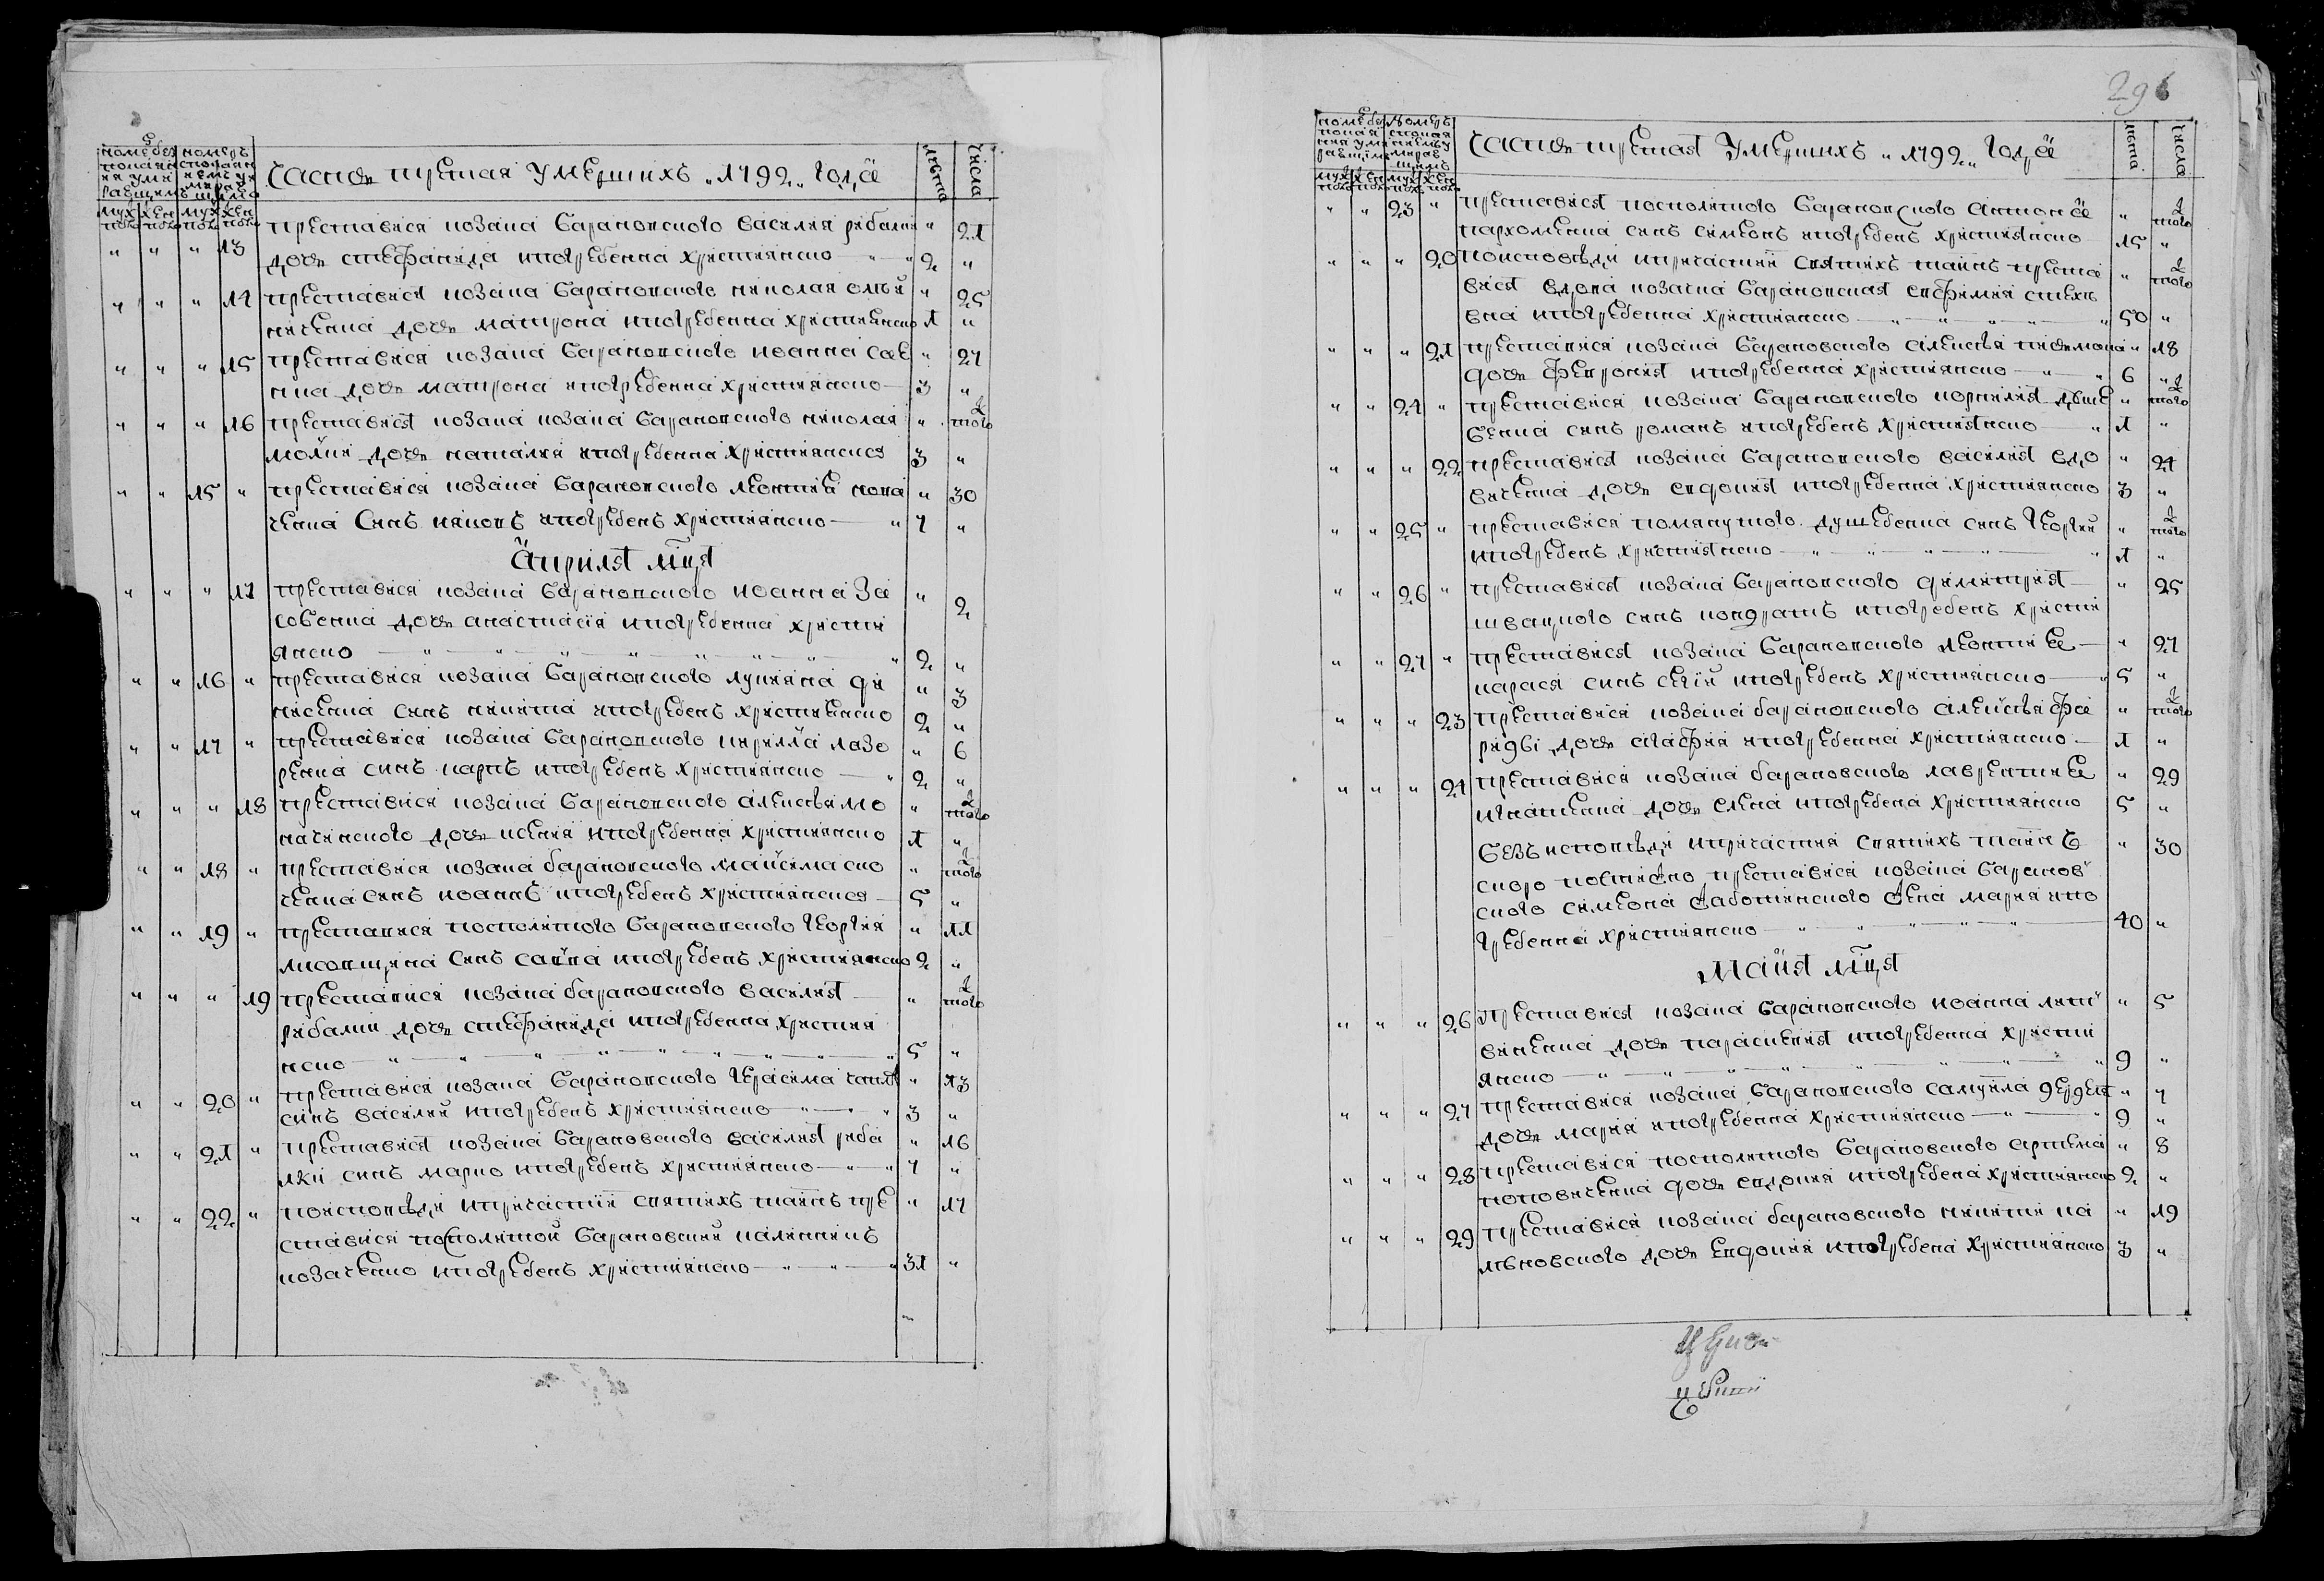 часть третая умершихъ 1792 года
лѣта
числа
13 преставися козака барановского василия рибалки 21
дочь стефанида ипогребенна християнско 2
14 преставися козака барановского николая олѣй 25
ниченка дочь матрона ипогребенна християнско 1
15 преставися козака барановского иоанна сав 27
чка дочь матрона ипогребенна християнско 3
16 преставися козака козака барановского николая того
дочь наталия ипогребенна християнско 3
15 преставися козака барановского леонтия кова 30
ченка синъ иаковъ ипогребенъ християнско 7
Априля мця
17 преставися козака барановского иоанна за 2
собенка дочь анастасія ипогребенна христи
янско 2
16 преставися козака барановского лукияна дя 3
ниченка синъ никита ипогребенъ християнско 2
17 преставися козака барановского кирилла лазо 6
ренка синъ карпъ ипогребенъ християнско 2
18 преставися козака барановского алексѣя мо того
начинского дочь ксения ипогребенна християнско 1
18 преставися козака барановского максима ско того
ченка синъ иоаннъ ипогребенъ християнско 5
19 преставися посполитого барановского георгия 11
лисовщика синъ савка ипогребенъ християнско 2
19 преставися козака барановского василия того
рибалки дочь стефанида ипогребенна христия
нско 5
20 преставися козака барановского герасима чапля 13
синъ василий ипогребенъ християнско 3
21 преставися козака барановского василия риба 16
лки синъ марко ипогребенъ християнско 7
22 поисповѣди ипричастіи святихъ таинъ пре 17
ставися посполитой барановский калинникъ
козаченко ипогребенъ християнско 31
296
часть третая умершихъ 1792 года
лѣта
числа
23 преставися посполитого барановского антона того
пархоменка синъ симеонъ ипогребенъ християнско 15
20 поисповѣди ипричастии святихъ таинъ преста того
вися вдова козачка барановская евфимия стехи
вна ипогребенна християнско 50
21 преставися козака барановского алексѣя письмака 18
дочь феврония ипогребенна християнско 6
24 преставися козака барановского корнилия душе того
бенка синъ романъ ипогребенъ християнско 1
22 преставися козака барановского василия вдо 21
виченка дочь евдокия ипогребенна християнско 3
25 преставися помянутого душебенка синъ георгий того
ипогребенъ християнско 1
26 преставися козака барановского димитрия 25
швацкого синъ кондратъ ипогребенъ христия
27 преставися козака барановского леонтия 27
карася синъ ипогребенъ християнско 5
23 преставися козака барановского алексѣя фа того
ридви дочь агафия ипогребенна християнско 1
24 преставися козака барановского лаврентия 29
игнатенка дочь елена ипогребена християнско 5
безъ исповѣди ипричастия святихъ таинъ 30
скоро постижно преставися козака баранов
ского симеона жаботинского жена мария ипо
гребенна християнско 40
Маия мця
26 преставися козака барановского иоанна лит 5
виненка дочь параскевия ипогребенна христи
янско 9
27 преставися козака барановского самуила дердея 7
дочь мария ипогребенна християнско 9
28 преставися посполитого барановского артема 8
поповиченка дочь евдокия ипогребена християнско 2
29 преставися козака барановского никити ка 19
лѣновского дочь евдокия ипогребена християнско 3